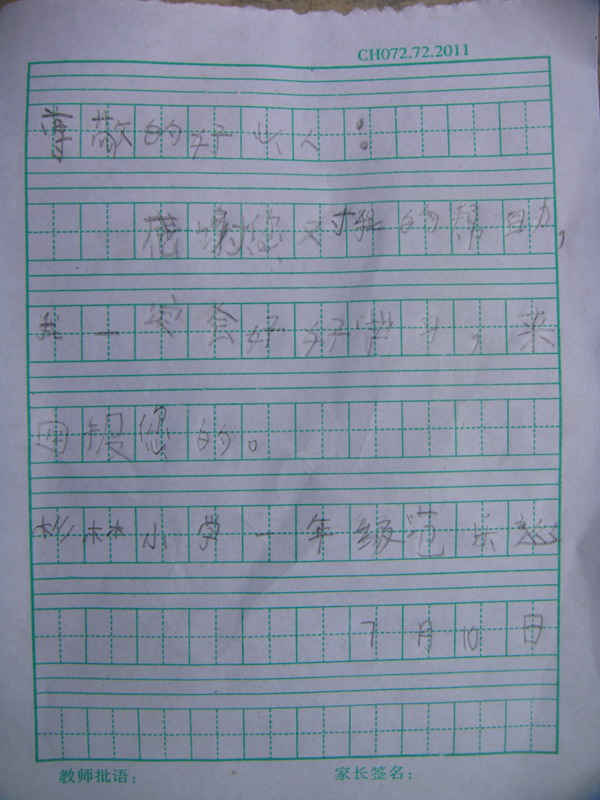 CH072.72.2011
尊敬的好心人：
感谢您对我的帮助，
我一定会好好学习，来
回报您的。
杉林小学一年级范乐
7月10日
教师批语： 家长签名：